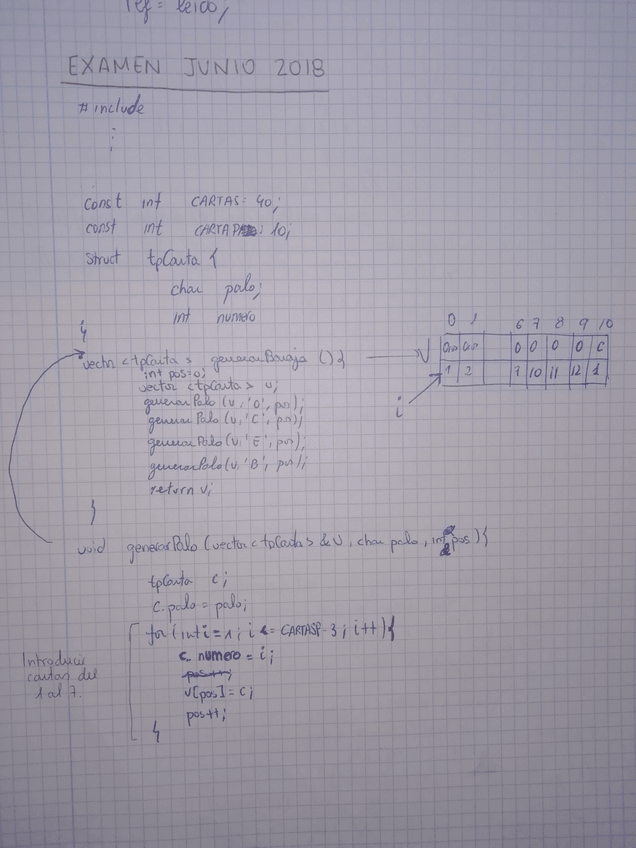 ref = leido;
EXAMEN JUNIO 2018
#include
:
const int CARTAS: 40;
const int CARTAP : 10;
struct tpCarta {
char palo;
int numero
}
vector <tpCarta> generarBaraja () {
int pos=0;
vector <tpCarta> v;
generarPalo (v, 'O', pos);
generarPalo (v, 'C', pos);
generarPalo (v, 'E', pos);
generarPalo (v, 'B', pos);
return v;
}
V
0 1 6 7 8 9 10
0 0 0 0 C
1 2 7 10 11 12 1
i
void generarPalo (vector <tpCartas &v, char palo, int & pos) {
tpCarta c;
c.palo = palo;
for (int i = 1; i <= CARTASP-3; i++) {
c numero = i;
pos++;
v[pos] = c;
pos++;
}
Introducir
cartas del
1 al 7.